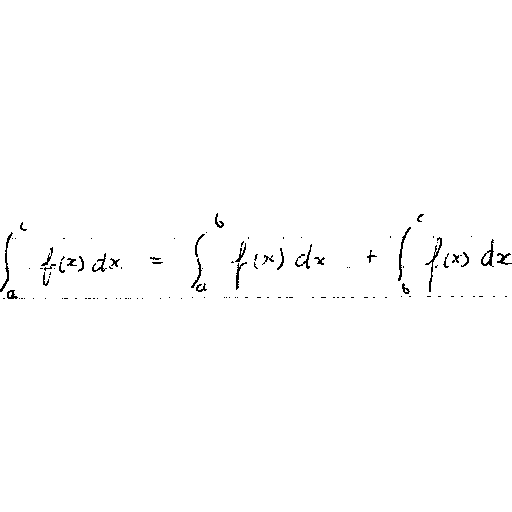 \int_{a}^{c} f(x) dx = \int_{a}^{b} f(x) dx + \int_{b}^{c} f(x) dx